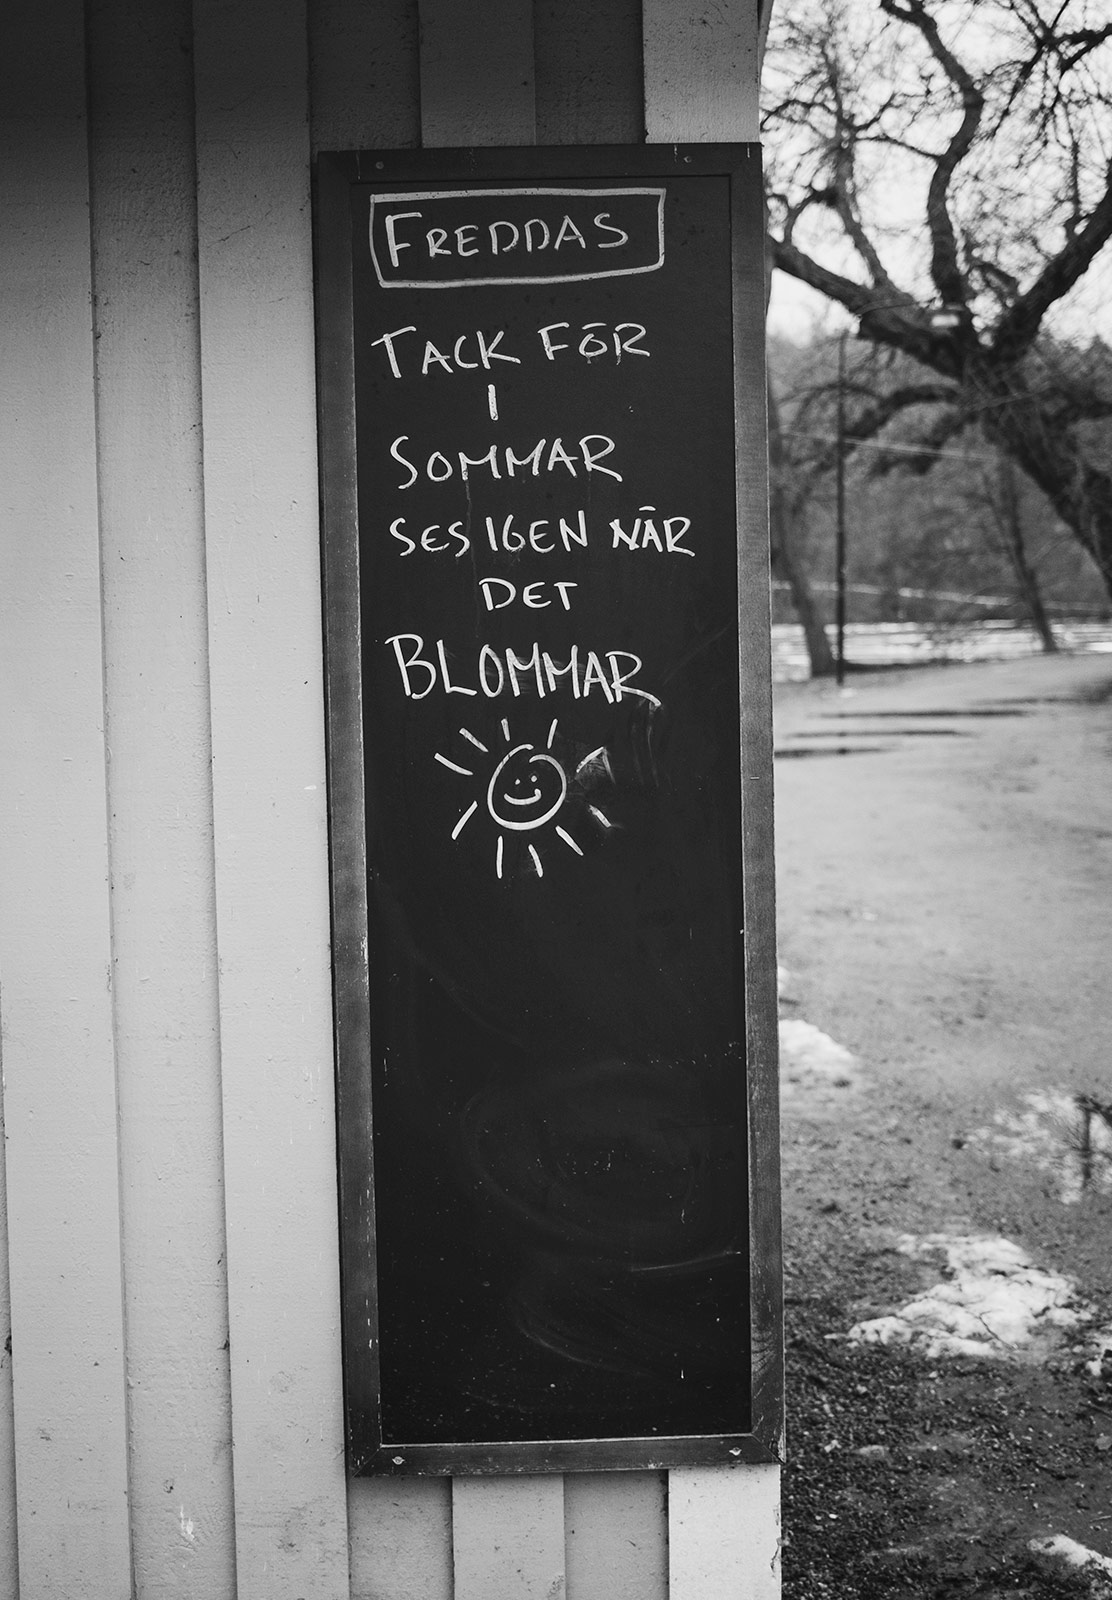 FREDDAS
TACK FÖR
I
SOMMAR
SES IGEN NÄR
DET
BLOMMAR